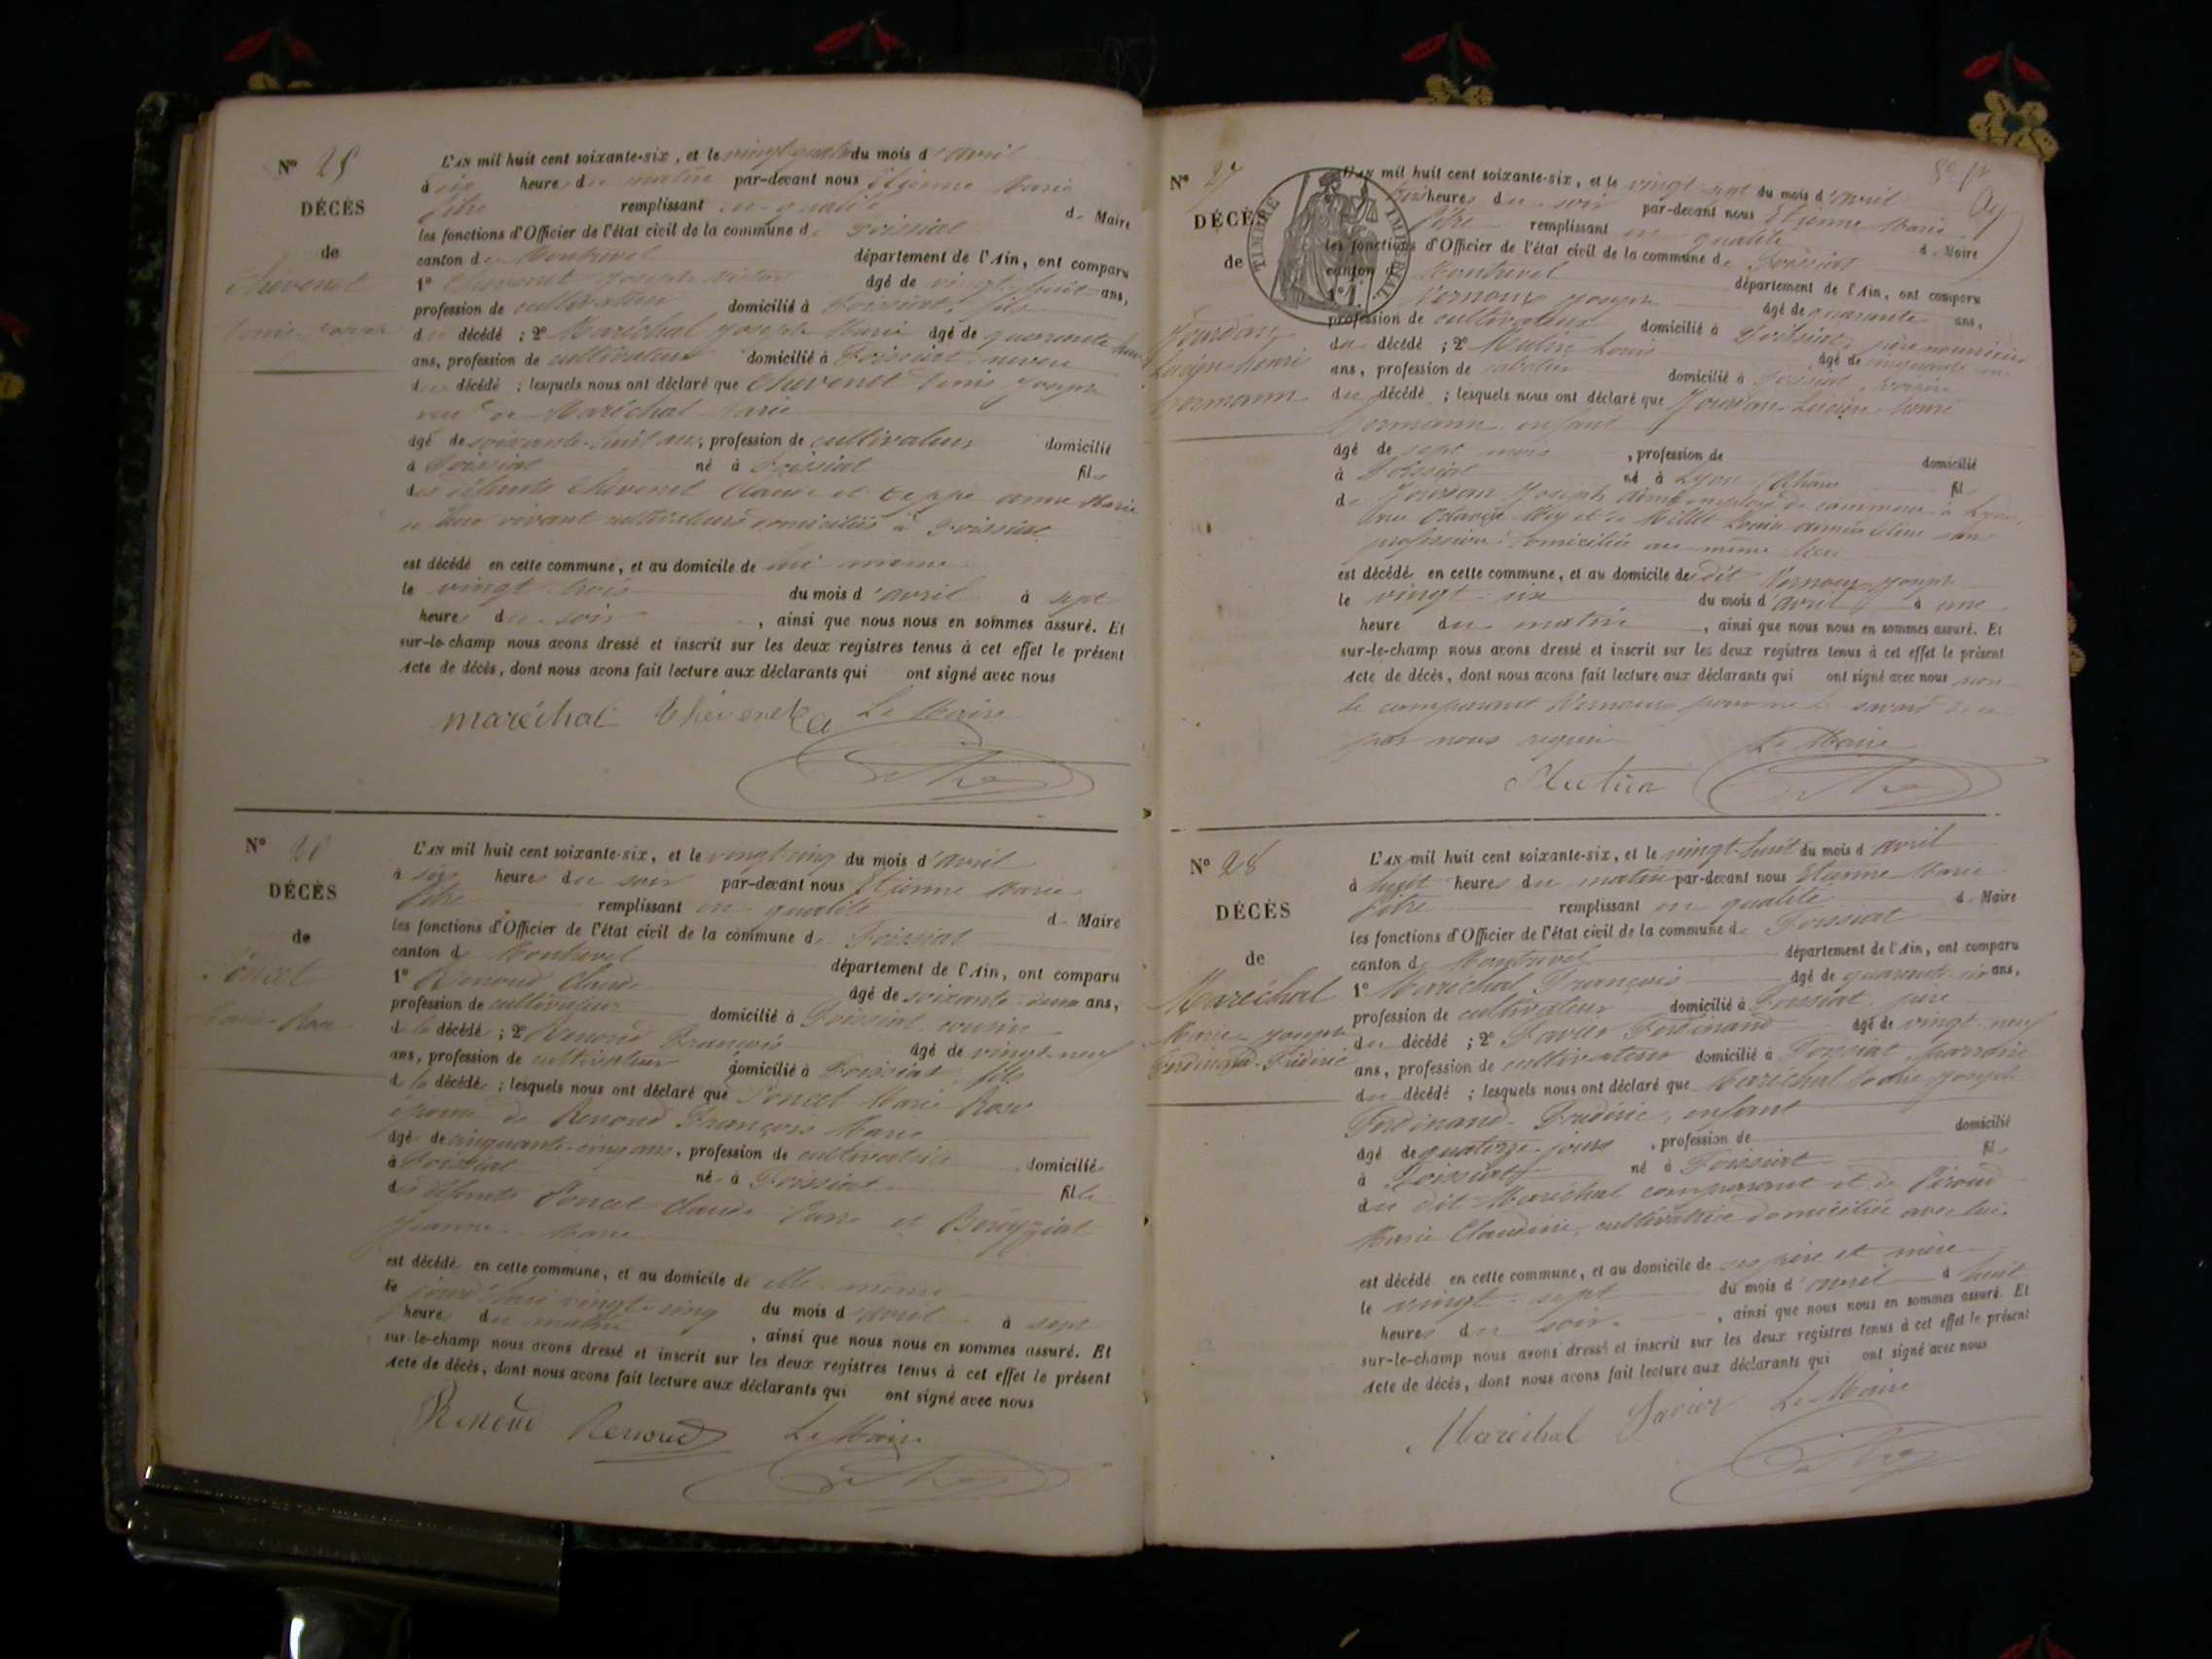 N° 25
DÉCÈS
de
Chevenet
Denis
L'AN mil huit cent soixante-six, et le vingt-quatre du mois d'avril
à six heures du matin par-devant nous Etienne Marie
Pitre remplissant en qualité de Maire
les fonctions d'Officier de l'état civil de la commune de Foissiat
canton de Montrevel département de l'Ain, ont comparu
1° Chevenet Joseph Victor âgé de vingt-huit ans,
profession de cultivateur domicilié à Foissiat, fils
du décédé ; 2° Maréchal Joseph Marie âgé de quarante
ans, profession de cultivateur domicilié à Foissiat, neveu
du décédé ; lesquels nous ont déclaré que Chevenet Denis Joseph
veuf de Maréchal Marie
âgé de soixante-huit ans, profession de cultivateur domicilié
à Foissiat né à Foissiat fils
des défunts Chevenet Claude et Teppe anne Marie
de leur vivant cultivateurs domiciliés à Foissiat
est décédé en cette commune, et au domicile de lui-même
le vingt-trois du mois d'avril à sept
heures du soir, ainsi que nous nous en sommes assuré. Et
sur-le-champ nous avons dressé et inscrit sur les deux registres tenus à cet effet le présent
Acte de décès, dont nous avons fait lecture aux déclarants qui ont signé avec nous
maréchal Chevenet Le Maire
N° 26
DÉCÈS
de
Poncet
Marie-Rose
L'AN mil huit cent soixante-six, et le vingt-cinq du mois d'avril
à six heures du soir par-devant nous Etienne Marie
Pitre remplissant en qualité de Maire
les fonctions d'Officier de l'état civil de la commune de Foissiat
canton de Montrevel département de l'Ain, ont comparu
1° Renoud Claude âgé de soixante-deux ans,
profession de cultivateur domicilié à Foissiat, cousin
de la décédé ; 2° Renoud François âgé de vingt-neuf
ans, profession de cultivateur domicilié à Foissiat, fils
de la décédé ; lesquels nous ont déclaré que Poncet Marie Rose
épouse de Renoud François Marie
âgé de cinquante-cinq ans, profession de cultivatrice domiciliée
à Foissiat née à Foissiat fille
des défunts Poncet Claude Marie et Bouyziat
Jeanne-Marie
est décédé en cette commune, et au domicile de elle-même
le jourd'hui vingt-cinq du mois d'avril à sept
heures du matin, ainsi que nous nous en sommes assuré. Et
sur-le-champ nous avons dressé et inscrit sur les deux registres tenus à cet effet le présent
Acte de décès, dont nous avons fait lecture aux déclarants qui ont signé avec nous
Renoud Renoud Le Maire
N° 27
DÉCÈS
de
Jourdan
Lucien-henri
hermann
TIMBRE IMPÉRIAL
L'AN mil huit cent soixante-six, et le vingt-sept du mois d'avril
heures du soir par-devant nous Etienne Marie
Pitre remplissant en qualité de Maire
les fonctions d'Officier de l'état civil de la commune de Foissiat
canton de Montrevel département de l'Ain, ont comparu
1° Vernoux Joseph âgé de quarante ans,
profession de cultivateur domicilié à Foissiat, père nourricier
du décédé ; 2° Mutin Louis âgé de cinquante
ans, profession de sabotier domicilié à Foissiat, voisin
du décédé ; lesquels nous ont déclaré que Jourdan Lucien henri
hermann enfant
âgé de sept mois, profession de domicilié
à Foissiat né à Lyon Rhône fils
de Jourdan Joseph aimé employé de commerce à Lyon,
rue Octavio Mey et de Millet Louise sans
profession domiciliée au même lieu
est décédé en cette commune, et au domicile de dit Vernoux Joseph
le vingt-six du mois d'avril à une
heure du matin, ainsi que nous nous en sommes assuré. Et
sur-le-champ nous avons dressé et inscrit sur les deux registres tenus à cet effet le présent
Acte de décès, dont nous avons fait lecture aux déclarants qui ont signé avec nous non
le comparant Vernoux pour ne le savoir de ce
par nous requis Le Maire
Mutin
N° 28
DÉCÈS
de
Maréchal
Marie-Joseph
Ferdinand-Fréderic
L'AN mil huit cent soixante-six, et le vingt-huit du mois d'avril
à huit heures du matin par-devant nous Etienne Marie
Pitre remplissant en qualité de Maire
les fonctions d'Officier de l'état civil de la commune de Foissiat
canton de Montrevel département de l'Ain, ont comparu
1° Maréchal François âgé de quarante-six ans,
profession de cultivateur domicilié à Foissiat, père
du décédé ; 2° Favier Ferdinand âgé de vingt-neuf
ans, profession de cultivateur domicilié à Foissiat, parrain
du décédé ; lesquels nous ont déclaré que Maréchal Marie Joseph
Ferdinand-Fréderic, enfant
âgé de quatorze jours, profession de domicilié
à Foissiat né à Foissiat fils
du dit Maréchal comparant et de Piroud
Marie Claudine, cultivatrice domiciliée avec lui
est décédé en cette commune, et au domicile de ses père et mère
le vingt-sept du mois d'avril à huit
heures du soir, ainsi que nous nous en sommes assuré. Et
sur-le-champ nous avons dressé et inscrit sur les deux registres tenus à cet effet le présent
Acte de décès, dont nous avons fait lecture aux déclarants qui ont signé avec nous
Maréchal Favier Le Maire